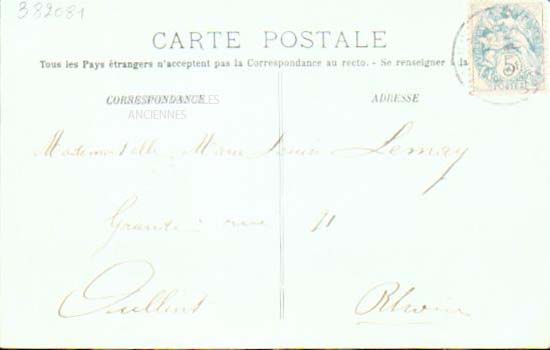 382081
CARTE POSTALE
Tous les Pays étrangers n'acceptent pas la Correspondance au recto. - Se renseigner à la
CORRESPONDANCE
ADRESSE
ANCIENNES
Mademoiselle Marie Louise Lemay
Grande rue 71
Oullins
Rhône
5
POSTES